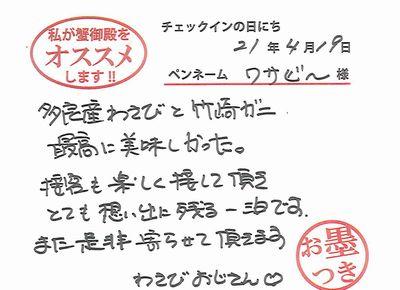 私が蟹御殿を
オススメ
します!!
チェックインの日にち
21年4月19日
ペンネーム ワサビ〜 様
多良産わさびと竹崎ガニ
最高に美味しかった。
接客も楽しく接して頂き
とても想い出に残る一泊です。
また是非寄らせて頂きます
わさびおじさん♡
お墨
つき